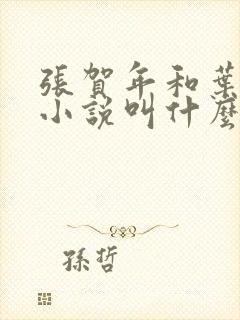 張賀年和葉
小說叫什麼
孫哲